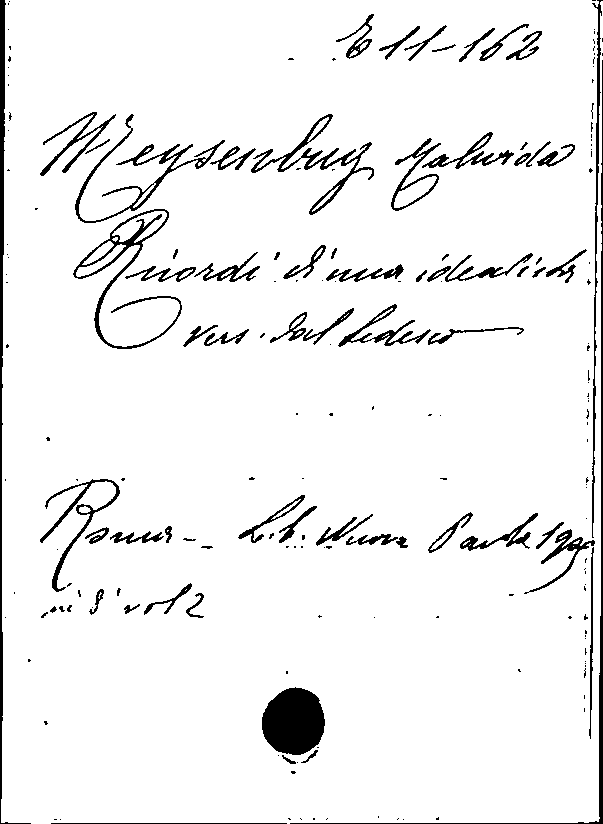 E 11-162
Meysenbug Malwida
Ricordi d'una idealista
vers. dal tedesco
Roma - Lib. Nuova
in 8° vol 2